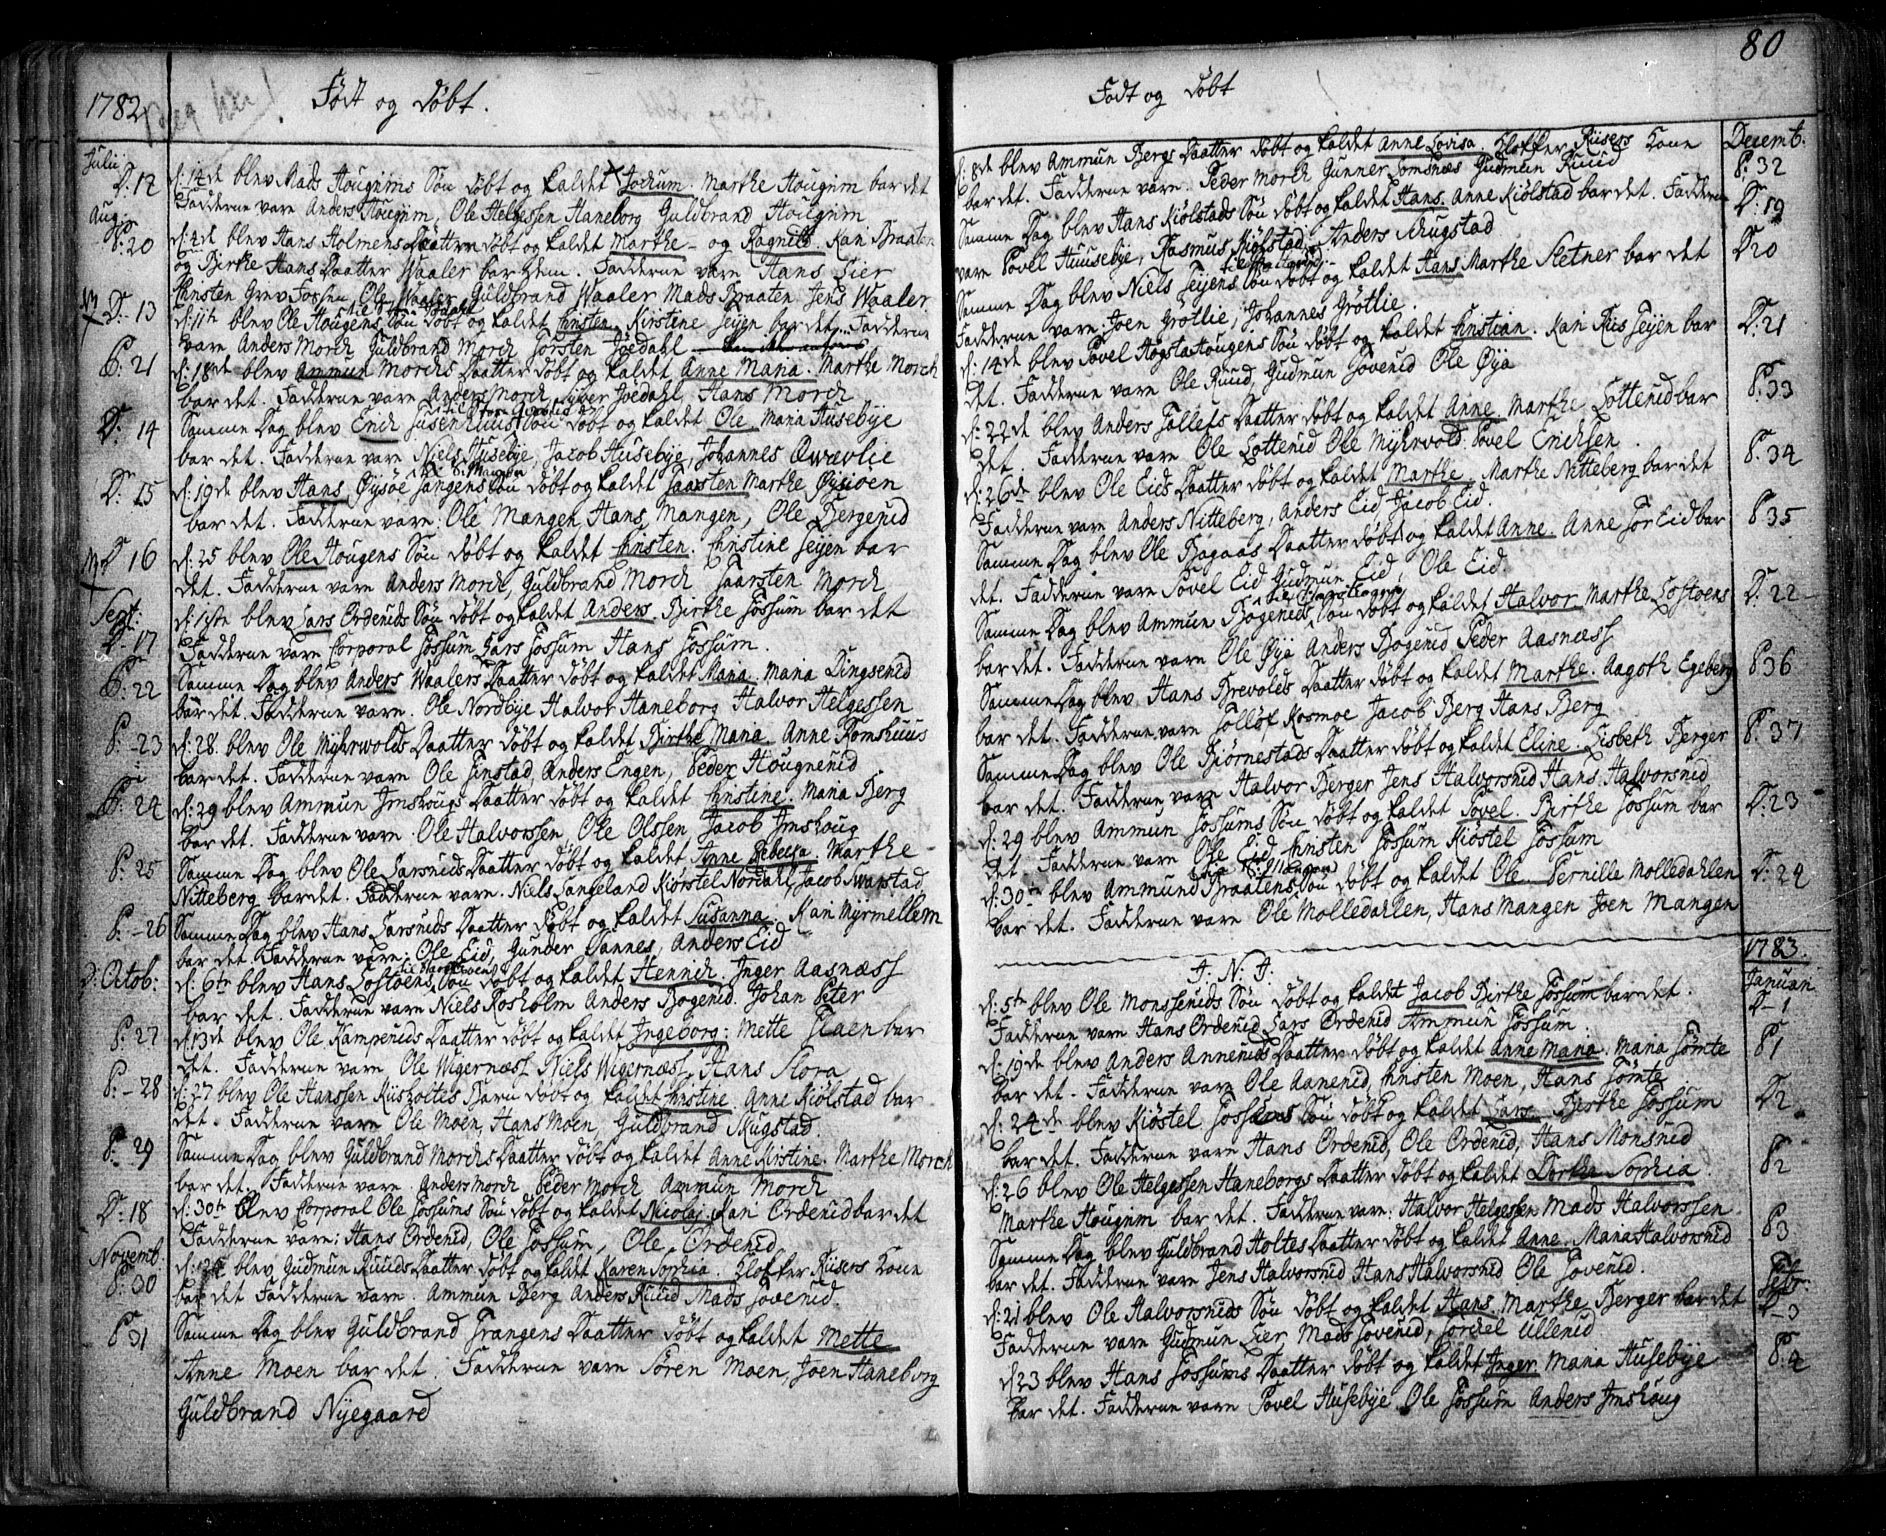 1782
Født og Døbt.
Julii
D: 12 d: 14de blev Mads Hougnims Søn døbt og kaldet Jochum. Marthe Hougnim bar det
Fadderne vare Anders Hougim, Ole Helgessen Haneborg Guldbrand Hougnim
Aug:
P: 20 d: 4de blev Hans Holmens Daatter døbt og kaldet Marthe - og Ragnild. Kari Braaten
og Birthe Hans Daatter Waaler bar dem. Fadderne vare Hans Lier
Christen Grev Fossen Ole Waaler Guldbrand Waaler Mads Braaten Jens Waaler
D: 13 d: 11te blev Ole Hougens Søn døbt og kaldet Christen. Kirstine Teijen bar det. Fadderne
vare Anders Morch Guldbrand Morch Torsten Joedahl
P: 21 d: 18de blev Ammun Morchs Daatter døbt og kaldet Anne Maria. Marthe Morch
bar det. Fadderne vare Anders Morch Siver Joedahl, Hans Morch
D: 14 Samme Dag blev Erich Tusenhuus Søn døbt og kaldet Ole. Maria Husebye
bar det. Fadderne vare Niels Husebye, Jacob Husebye, Johannes Qvævlie
D: 15 d: 19de blev Hans Øysøe Tangens Søn døbt og kaldet Taarsten Marthe Øysoen
bar det. Fadderne vare: Ole Mangen Hans Mangen, Ole Bergerud
D 16 d: 25 blev Ole Hougens Søn døbt og kaldet Christen. Christine Teijen bar
det. Fadderne vare Anders Morch, Guldbrand Morch Taarsten Morch
Sept:
D: 17 d: 1ste blev Lars Orderuds Søn døbt og kaldet Anders. Birthe Fossum bar det
Fadderne vare Corporal Fossum Lars Fossum Hans Fossum.
P: 22 Samme Dag blev Anders Waalers Daatter døbt og kaldet Maria. Maria Kingserud
bar det. Fadderne vare. Ole Nordbye Halvor Haneborg Halvor Helgessen
P: 23 d: 28. blev Ole Myhrvolds Daatter døbt og kaldet Birthe Maria. Anne Tomshuus
bar det. Fadderne vare Ole Finstad, Anders Engen, Peder Hougnerud
P: 24 d: 29 blev Ammun Imshougs Daatter døbt og kaldet Christine. Maria Berg
bar det. Fadderne vare Ole Halvorssen Ole Olssen Jacob Imshoug
P: 25 Samme Dag blev Ole Larsruds Daatter døbt og kaldet Anne Rebecca. Marthe
Nitteberg bar det. Fadderne vare. Niels Langeland Kiørstel Nordahl, Jacob Svarstad
P: 26 Samme Dag blev Hans Larsruds Daatter døbt og kaldet Susanna. Kari Myrmellem
bar det Fadderne vare: Ole Eid, Gunder Sannes, Anders Eid
D: Octob: d: 6te blev Hans Lostoens Søn døbt og kaldet Henrich. Inger Aasnæss
bar det. Fadderne vare Niels Rosholm Anders Bøgerud. Johan Peter
P: 27 d: 13de blev Ole Kamperuds Daatter døbt og kaldet Ingeborg: Mette Flaen bar
det. Fadderne vare Ole Wigernæss Niels Wigernæss, Hans Flora
P: 28 d: 27 blev Ole Hanssen Riisholtes Barn døbt og kaldet Christine Anne Kiølstad bar
det. Fadderne vare Ole Moen, Hans Moen, Guldbrand Skugstad.
P: 29 Samme Dag blev Guldbrand Morchs Daatter døbt og kaldet Anne Kirstine. Marthe Morch
bar det. Fadderne vare. Anders Morch Peder Morch Ammun Morch
D: 18 d: 30te blev Corporal Ole Fossums Søn døbt og kaldet Nicolai. Kari Orderud bar det
Fadderne vare: Hans Orderud, Ole Fossum, Ole Orderud
Novemb:
P: 30 blev Gudmun Ruuds Daatter døbt og kaldet Karen Sophia. Klokker Riisers Kone
bar det Fadderne vare. Ammun Berg Anders Ruud Mads Toverud.
P: 31 Samme Dag blev Guldbrand Trangens Daatter døbt og kaldet Mette
Anne Moen bar det. Fadderne vare Søren Moen, Joen Haneborg
Guldbrand Nyegaard
80
Født og Døbt
d: 8de blev Ammun Bergs Daatter døbt og kaldet Anne Lovisa. Klokker Riisers Kone Decemb:
bar det. Fadderne vare. Peder Morch Gunner Tomsnæs Gudmun Ruud P: 32
Samme Dag blev Hans Kiølstads Søn døbt og kaldet Hans. Anne Kiølstad bar det. Fadderne D: 19
vare Povel Huusebye, Rasmus Kiølstad Anders Skugstad
Samme Dag blev Niels Teijens Søn døbt og kaldet Hans Marthe Sletner bar det D 20
Fadderne vare: Joen Grøtlie, Johannes Grøtlie.
d: 14de blev Povel Hougens Søn døbt og kaldet Christian. Kari Riis Teijen bar D: 21
det. Fadderne vare Ole Ruud, Gudmun Toverud Ole Øya
d: 22de blev Anders Tollefs Daatter døbt og kaldet Anne. Marthe Lotterud bar P: 33
det. Fadderne vare Ole Lotterud Ole Myhrvold. Povel Erichsen
d: 26de blev Ole Eids Daatter døbt og kaldet Marthe. Marthe Nitteberg bar det P: 34
Fadderne vare Anders Nitteberg, Anders Eid Jacob Eid.
Samme Dag blev Ole Bagaas Daatter døbt og kaldet Anne. Anne Tor Eid bar P 35
det. Fadderne vare Povel Eid Gudmun Eid, Ole Eid.
Samme Dag blev Ammun Bøgeruds Søn døbt og kaldet Halvor Marthe Lostoens D: 22
bar det. Fadderne vare Ole Øya Anders Bøgerud Peder Aasnæss
Samme Dag blev Hans Brevolds Daatter døbt og kaldet Marthe. Aagoth Egeberg P 36
bar det. Fadderne vare Tolløf Kosmoe Jacob Berg Hans Berg
Samme Dag blev Ole Biørnestads Daatter døbt og kaldet Eline. Lisbeth Berger P: 37
bar det. Fadderne vare Halvor Berger Jens Halvorsrud Hans Halvorsrud
d: 29 blev Ammun Fossums Søn døbt og kaldet Povel Birthe Fossum bar D: 23
det. Fadderne vare Ole Eid Christen Fossum Kiøstel Fossum
d: 30te blev Ammund Braatens Søn døbt og kaldet Ole. Pernille Molledahlen D: 24
bar det. Fadderne vare Ole Molledahlen, Hans Mangen Joen Mangen
1783.
I. N. J. Januari
d: 5te blev Ole Monsseruds Søn døbt og kaldet Jacob Birthe Fossum bar det. D- 1
Fadderne vare Hans Orderud Lars Orderud Ammun Fossum
d: 19de blev Anders Anneruds Daatter døbt og kaldet Anne Maria. Maria Tomte P 1
bar det. Fadderne vare Ole Aanerud, Christen Moen, Hans Tomte
d: 24de blev Kiøstel Fossums Søn døbt og kaldet Lars Birthe Fossum D 2
bar det. Fadderne vare Hans Orderud, Ole Orderud, Hans Monsrud
d: 26 blev Ole Helgessen Haneborgs Daatter døbt og kaldet Dorthe Sophia P 2
Marthe Hougnim bar det. Fadderne vare: Halvor Helgessen Mads Halvorssen
Samme Dag blev Guldbrand Holtes Daatter døbt og kaldet Anne. Maria Halvorsrud P 3
bar det. Fadderne vare Jens Halvorsrud Hans Halvorsrud Ole Toverud.
Febr:
d: 21 blev Ole Halvorsruds Søn døbt og kaldet Hans. Marthe Berger bar det D- 3
Fadderne vare Gudmun Lier Mads Toverud, Torkel Ullerud
d: 23 blev Hans Fossums Daatter døbt og kaldet Inger Maria Husebye P: 4
bar det. Fadderne vare Povel Husebye Ole Fossum Anders Imshoug